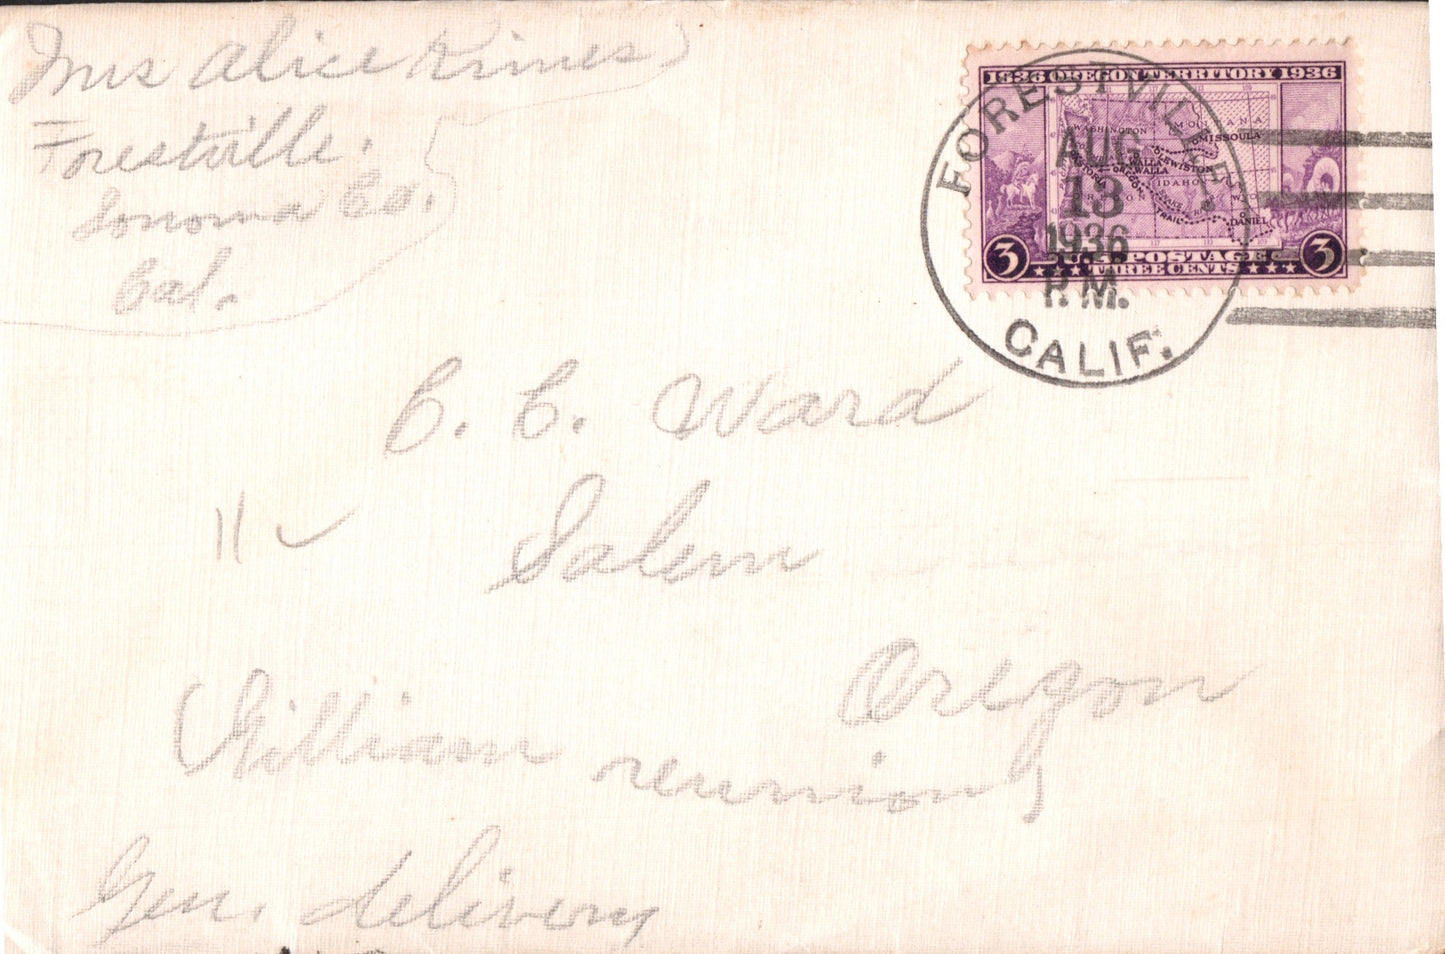 Mrs Alice Rimes
Forestville.
Sonoma Co.
Cal.
1836 OREGON TERRITORY 1936
WASHINGTON
MONTANA
MISSOULA
LEWISTON
WALLA
WALLA
IDAHO
SNAKE
TRAIL
DANIEL
3 U.S. POSTAGE 3
THREE CENTS
FORESTVILLE,
AUG
13
1936
P.M.
CALIF.
C. C. Ward
Salem
Oregon
(William reunion)
Gen. delivery